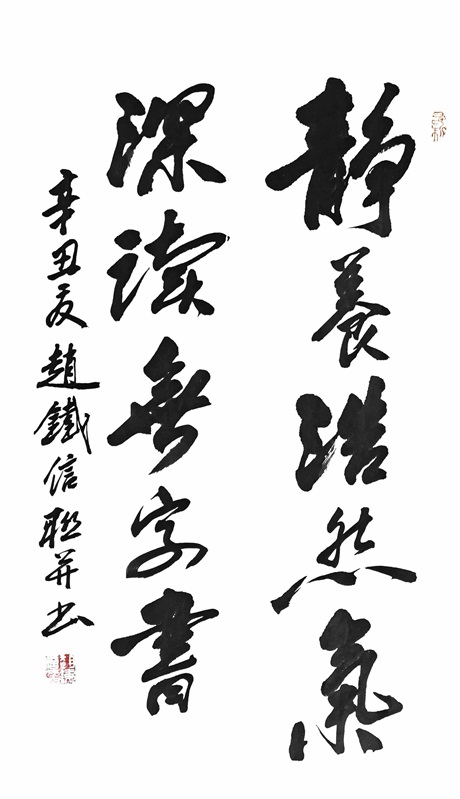 静養浩然氣
深读無字書
辛丑夏趙鐵信聯并书